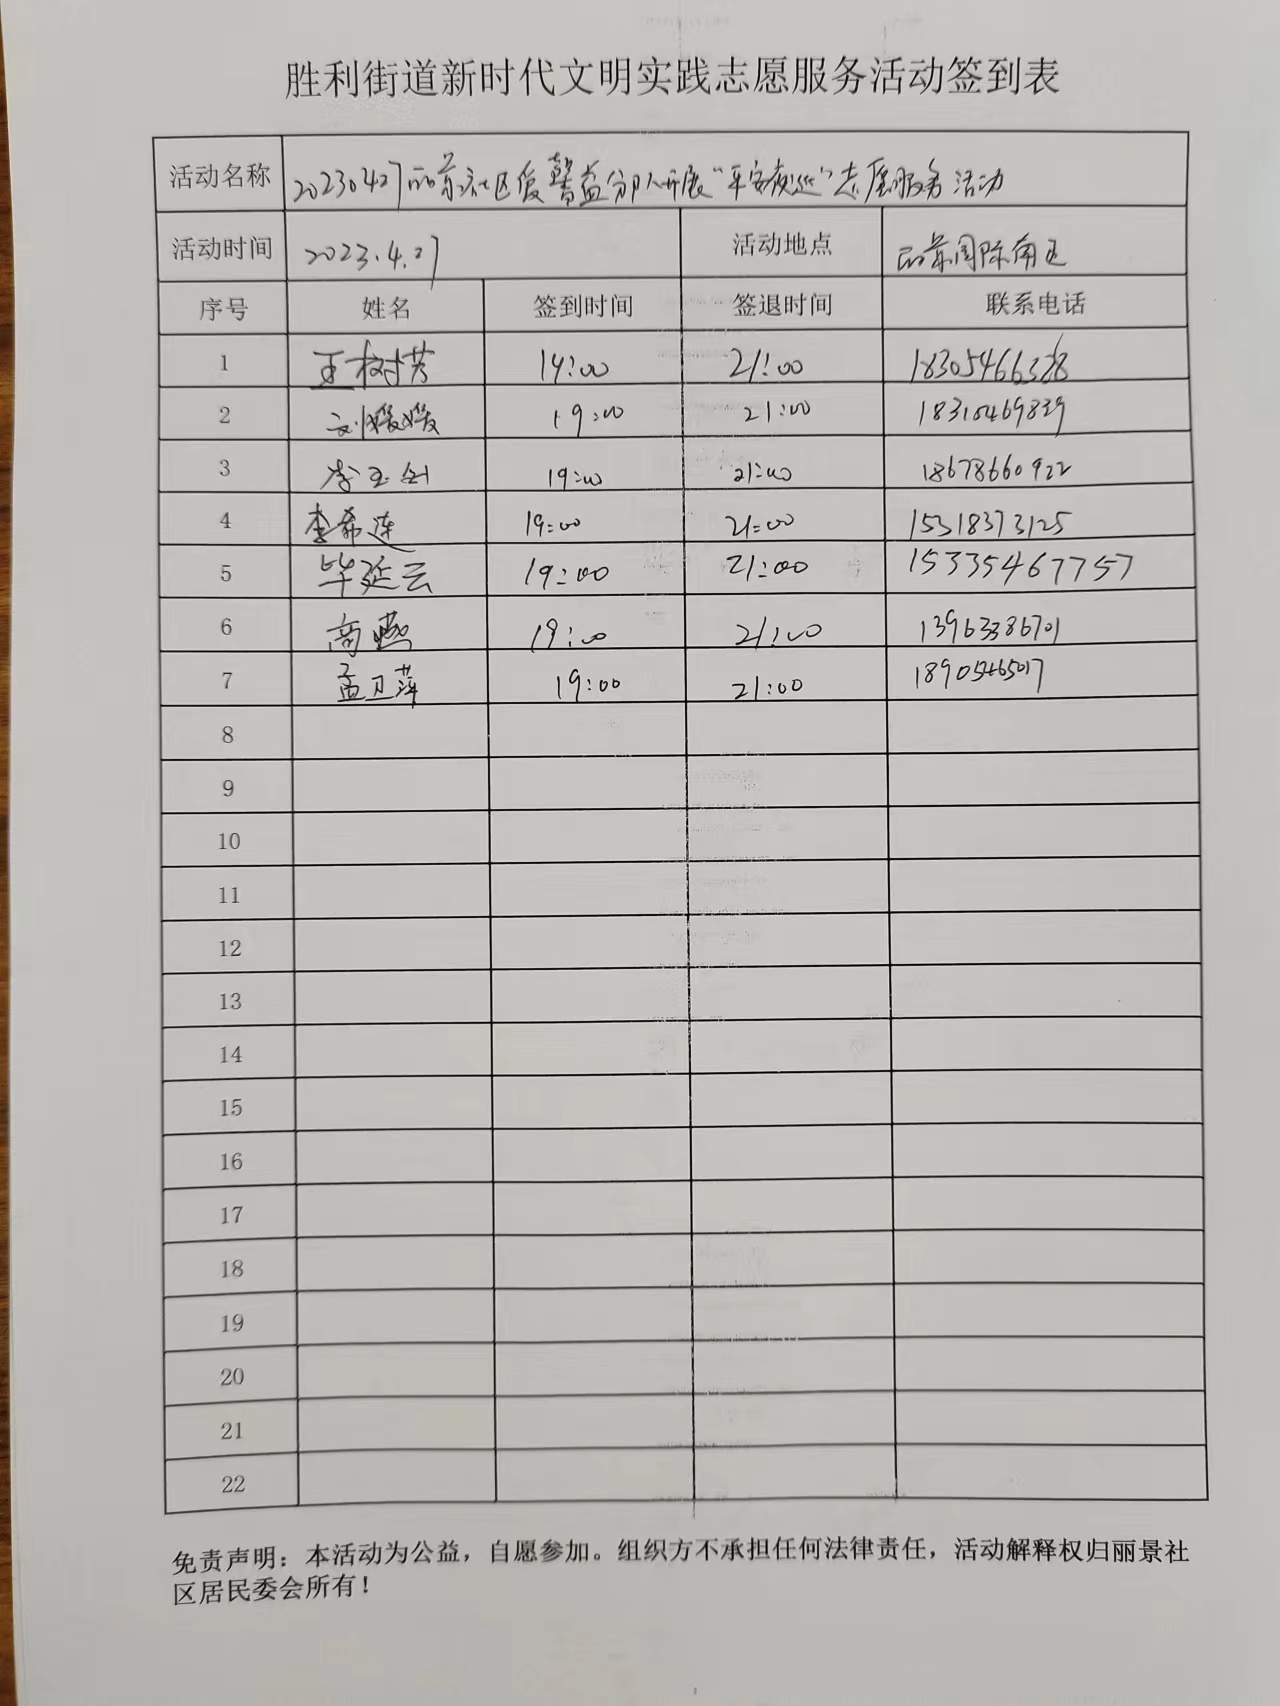 胜利街道新时代文明实践志愿服务活动签到表
活动名称 20230427丽景社区爱馨益分队开展“平安夜巡”志愿服务活动
活动时间 2023.4.27 活动地点 丽景国际南区
序号 姓名 签到时间 签退时间 联系电话
1 王树芳 19:00 21:00 18305466328
2 刘媛媛 19:00 21:00 18310469839
3 李玉剑 19:00 21:00 18678660922
4 李希连 19:00 21:00 15318373125
5 毕延云 19:00 21:00 15335467757
6 商燕 19:00 21:00 13963386701
7 孟卫萍 19:00 21:00 18905465017
8
9
10
11
12
13
14
15
16
17
18
19
20
21
22
免责声明：本活动为公益，自愿参加。组织方不承担任何法律责任，活动解释权归丽景社
区居民委会所有！